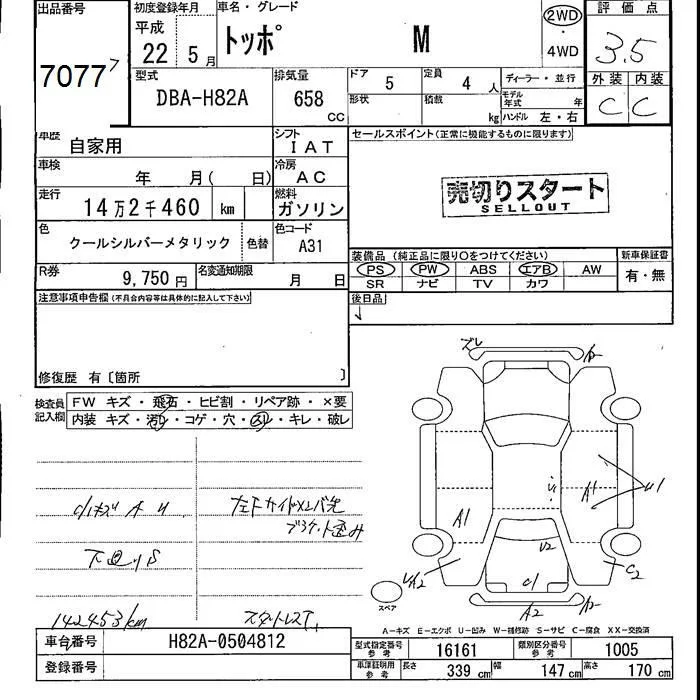 出品番号
7077 7
初度登録年月
平成
22年 5月
車名・グレード
トッポ M
2WD
・
4WD
評価点
3.5
外装 内装
C C
型式
DBA-H82A
排気量
658
CC
ドア 5
定員 4人
ディーラー・並行
形状
積載 kg
モデル年式 年
ハンドル 左・右
車歴
自家用
シフト
IAT
セールスポイント(正常に機能するものに限ります)
売切りスタート
SELLOUT
車検 年 月( 日)
冷房
AC
走行
14万2千460 km
燃料
ガソリン
色
クールシルバーメタリック
色替
色コード
A31
装備品 (純正品に限り○をつけてください)
PS PW ABS エアB AW
SR ナビ TV カワ
新車保証書
有・無
R券
9,750円
名変通知期限
月 日
後日品
注意事項申告欄(不具合内容等は具体的に記入して下さい)
修復歴 有〔箇所 〕
検査員記入欄
FW キズ・飛石・ヒビ割・リペア跡・×要
内装 キズ・汚れ・コゲ・穴・スレ・キレ・破レ
小キズ A U
下回りS
142453km
ズレ
A1
A1
U1
U2
C1
C2
A2
スペア
A-キズ E-エクボ U-凹み W-補修跡 S-サビ C-腐食 XX-交換済
車台番号 H82A-0504812
登録番号
型式指定番号 参考 16161
類別区分番号 参考 1005
車庫証明用 参考 長さ 339 幅 147 高さ 170 cm